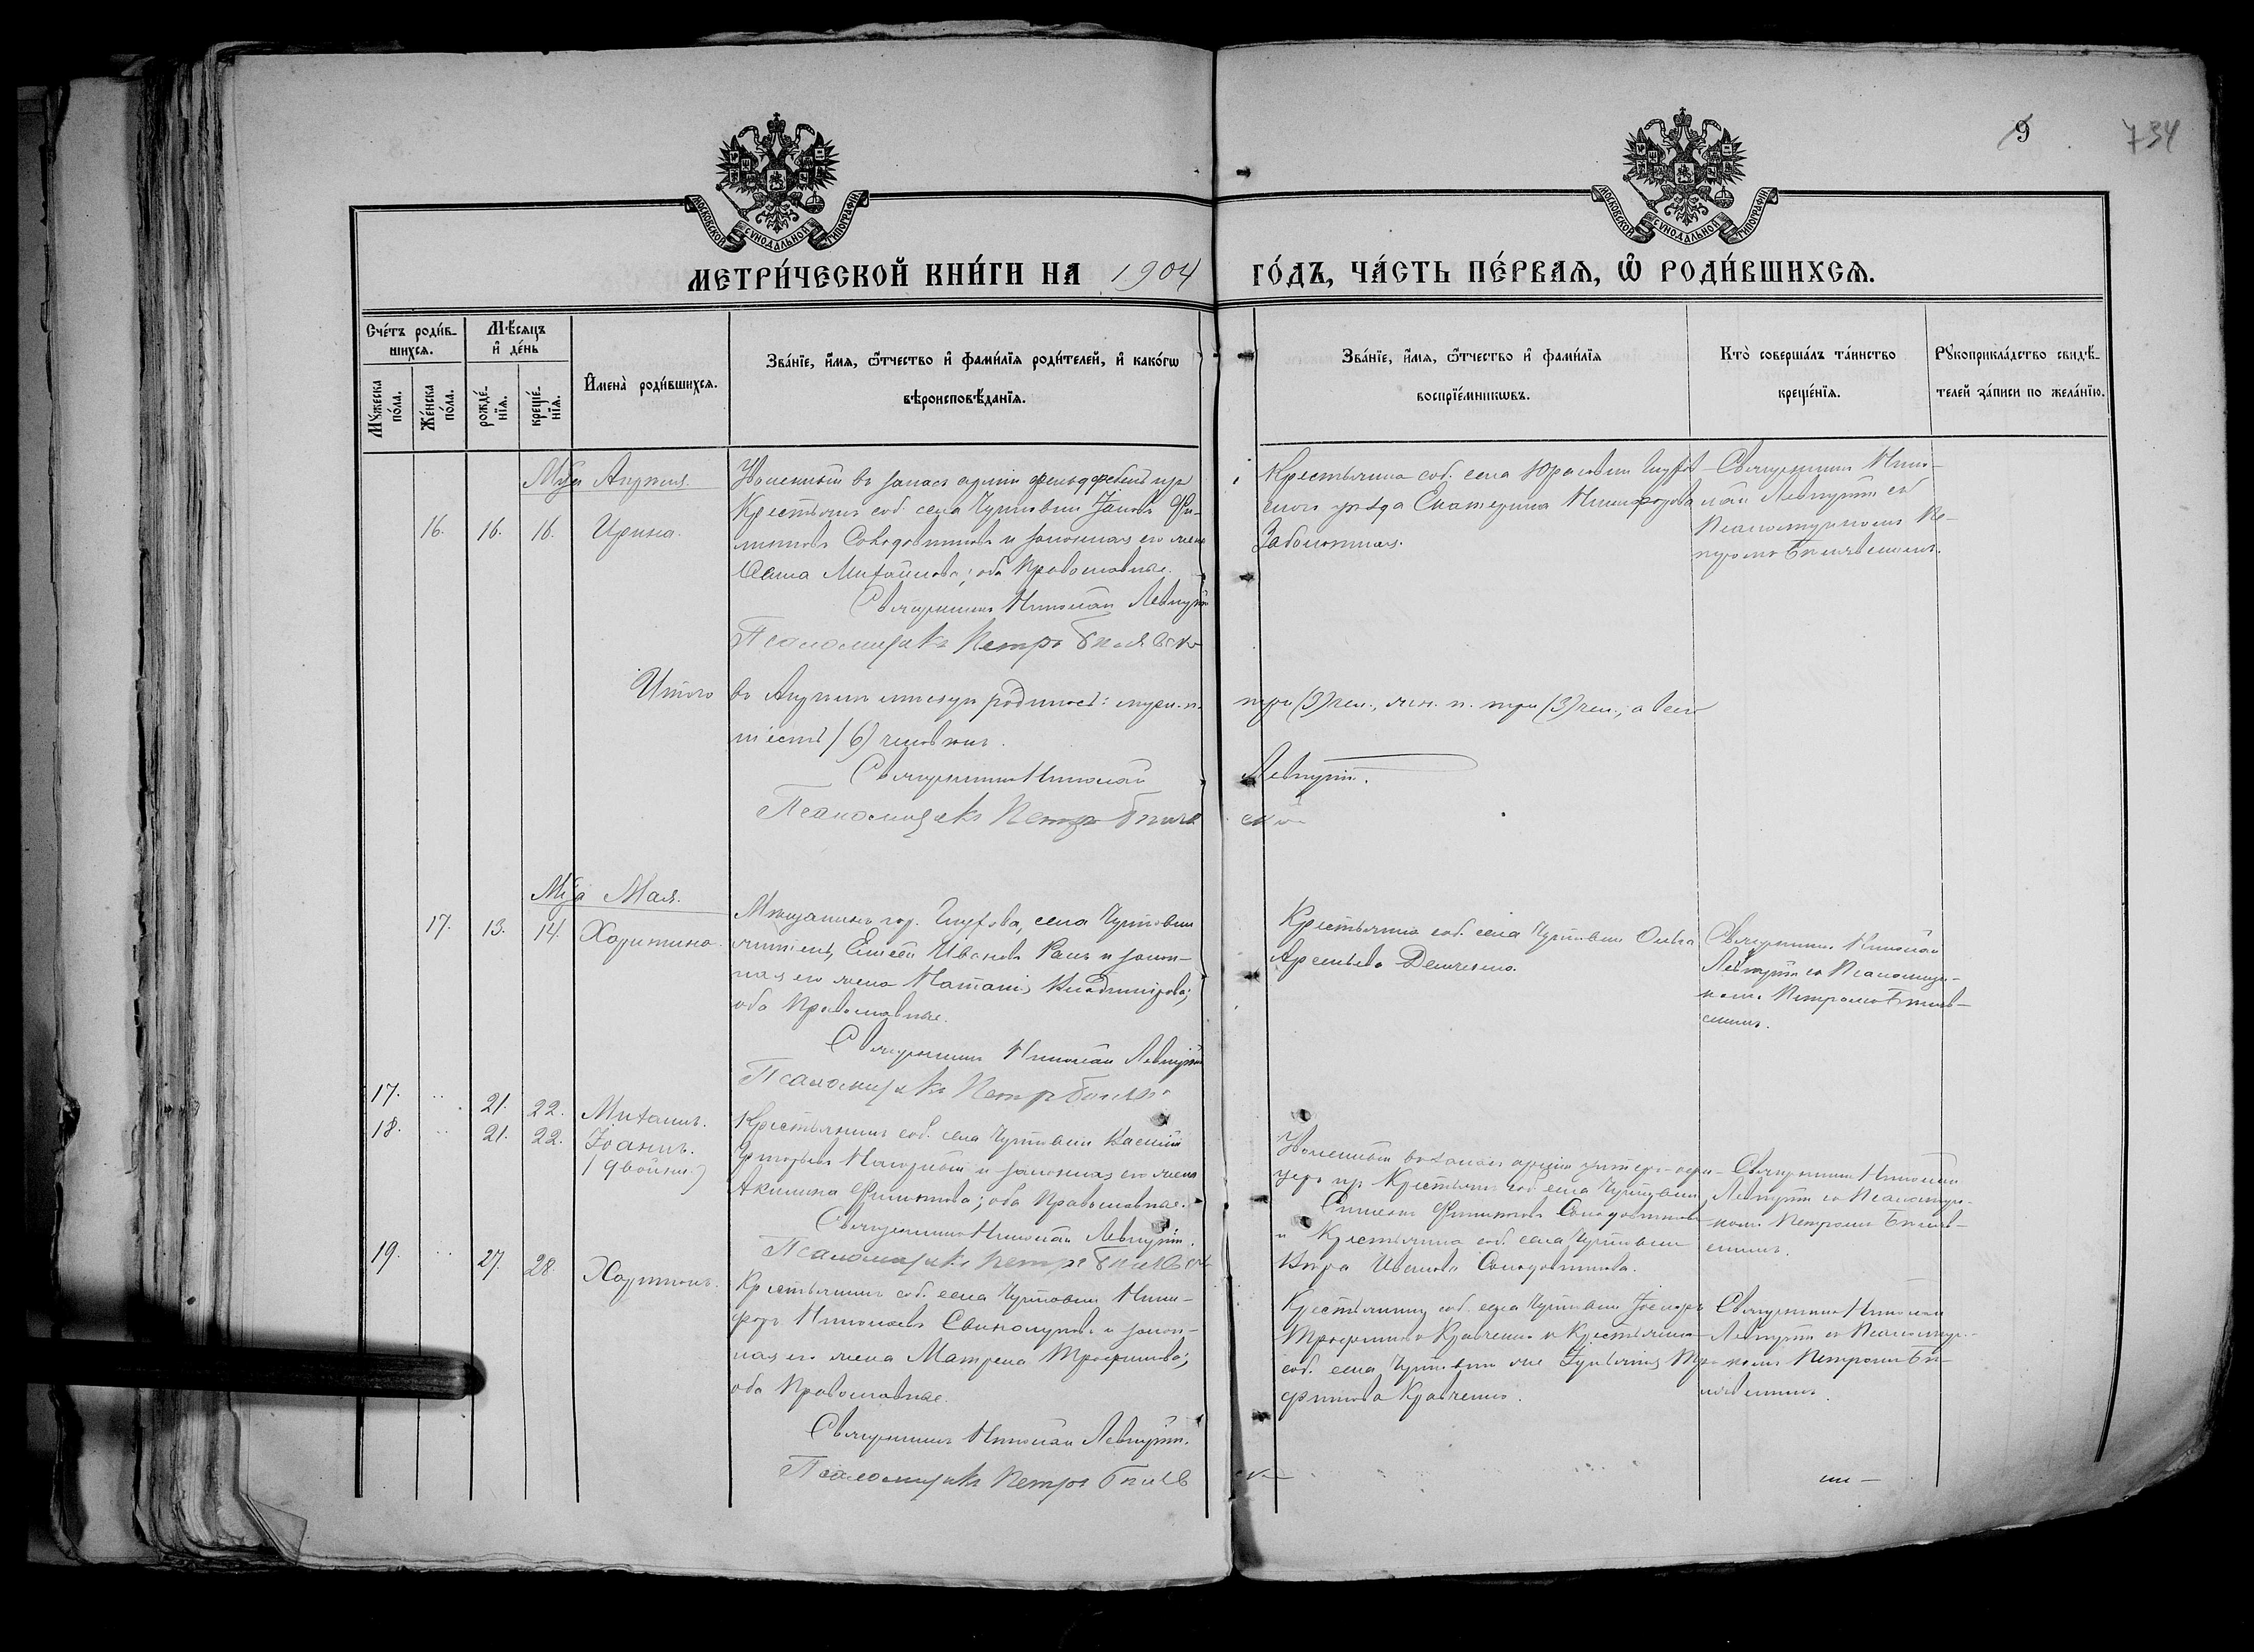 9
734
МОСКОВСКОЙ СУНОДАЛЬНОЙ ТИПОГРАФИИ
МОСКОВСКОЙ СУНОДАЛЬНОЙ ТИПОГРАФИИ
МЕТРИ́ЧЕСКОЙ КНИ́ГИ НА 1904 ГО́ДЪ, ЧА́СТЬ ПЕ́РВАЯ, Ѽ РОДИ́ВШИХСЯ.
Сче́тъ роди́в-
шихся.
Мꙋжеска по́ла.
Же́нска по́ла.
Мѣ́сяцъ и҆ де́нь
рожде́-нїя.
креще́-нїя.
И҆мена̀ роди́вшихся.
Зва́нїе, и҆́мя, ѻ҆́тчество и҆ фами́лїя роди́телей, и҆ како́гѡ
вѣроисповѣ́данїя.
Зва́нїе, и҆́мя, ѻ҆́тчество и҆ фами́лїя
воспрїе́мникѡвъ.
Кто̀ соверша́лъ та́инство
креще́нїя.
Рꙋкоприкла́дство свидѣ́-
телей за́писи по жела́нїю.
Мѣсяца Апрѣля.
16. 16. 16. Ирина.
Уволенный въ запасъ арміи фельдфебель изъ
Крестьянъ соб. села
Солодовниковъ и законная его жена
Анна Михайлова; оба Православные.
Священникъ Николай Левицкій
Псаломщикъ Петръ
Крестьянка соб. села
уѣзда Екатерина Никифорова
Заболотная.
Священникъ Нико-
лай Левицкій съ
Псаломщикомъ Пе-
тромъ
Итого въ Апрѣлѣ мѣсяцѣ родилось: муж. п. три (3) чел., жен. п. три (3) чел., а всего
шесть (6) человѣкъ.
Священникъ Николай Левицкій.
Псаломщикъ Петръ
Мѣсяца Мая.
17. 13. 14. Харитина.
Мѣщанинъ гор. Глухова, села
житель, Елисей Ивановъ и закон-
ная его жена Наталія Владимірова;
оба Православные.
Священникъ Николай Левицкій
Псаломщикъ Петръ
Крестьянка соб. села Ольга
Арсеньева Демченко.
Священникъ Николай
Левицкій съ Псаломщи-
комъ Петромъ
17. 21. 22. Михаилъ.
18. 21. 22. Іоаннъ.
(двойни)
Крестьянинъ соб. села Василій
Григорьевъ и законная его жена
Акилина Филиппова; оба Православные.
Священникъ Николай Левицкій.
Псаломщикъ Петръ
Уволенный въ запасъ арміи унтеръ-офи-
церъ изъ Крестьянъ соб. села
Филипповъ Солодовниковъ
и Крестьянка соб. села
Вѣра Иванова Солодовникова.
Священникъ Николай
Левицкій съ Псаломщи-
комъ Петромъ
19. 27. 28. Харитонъ.
Крестьянинъ соб. села Ники-
форъ Николаевъ и закон-
ная его жена Матрена Трофимова;
оба Православные.
Священникъ Николай Левицкій.
Псаломщикъ Петръ
Крестьянинъ соб. села
Трофимовъ Кравченко и Крестьянка
соб. села Тро-
фимова Кравченко.
Священникъ Николай
Левицкій съ Псаломщи-
комъ Петромъ